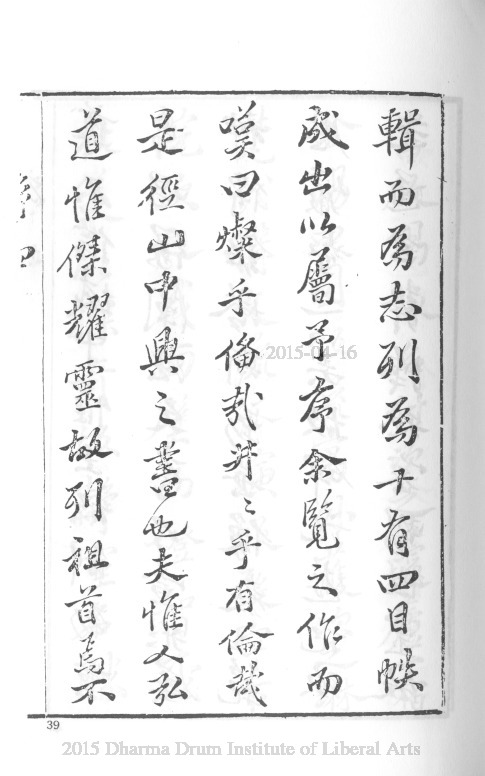 輯而為志列為十有四目帙
成出以屬予序余覽之作而
嘆曰燦乎俻哉井〻乎有倫哉
是徑山中興之書也夫惟人弘
道惟傑耀靈故列祖首焉不
39
2015-04-16
2015 Dharma Drum Institute of Liberal Arts